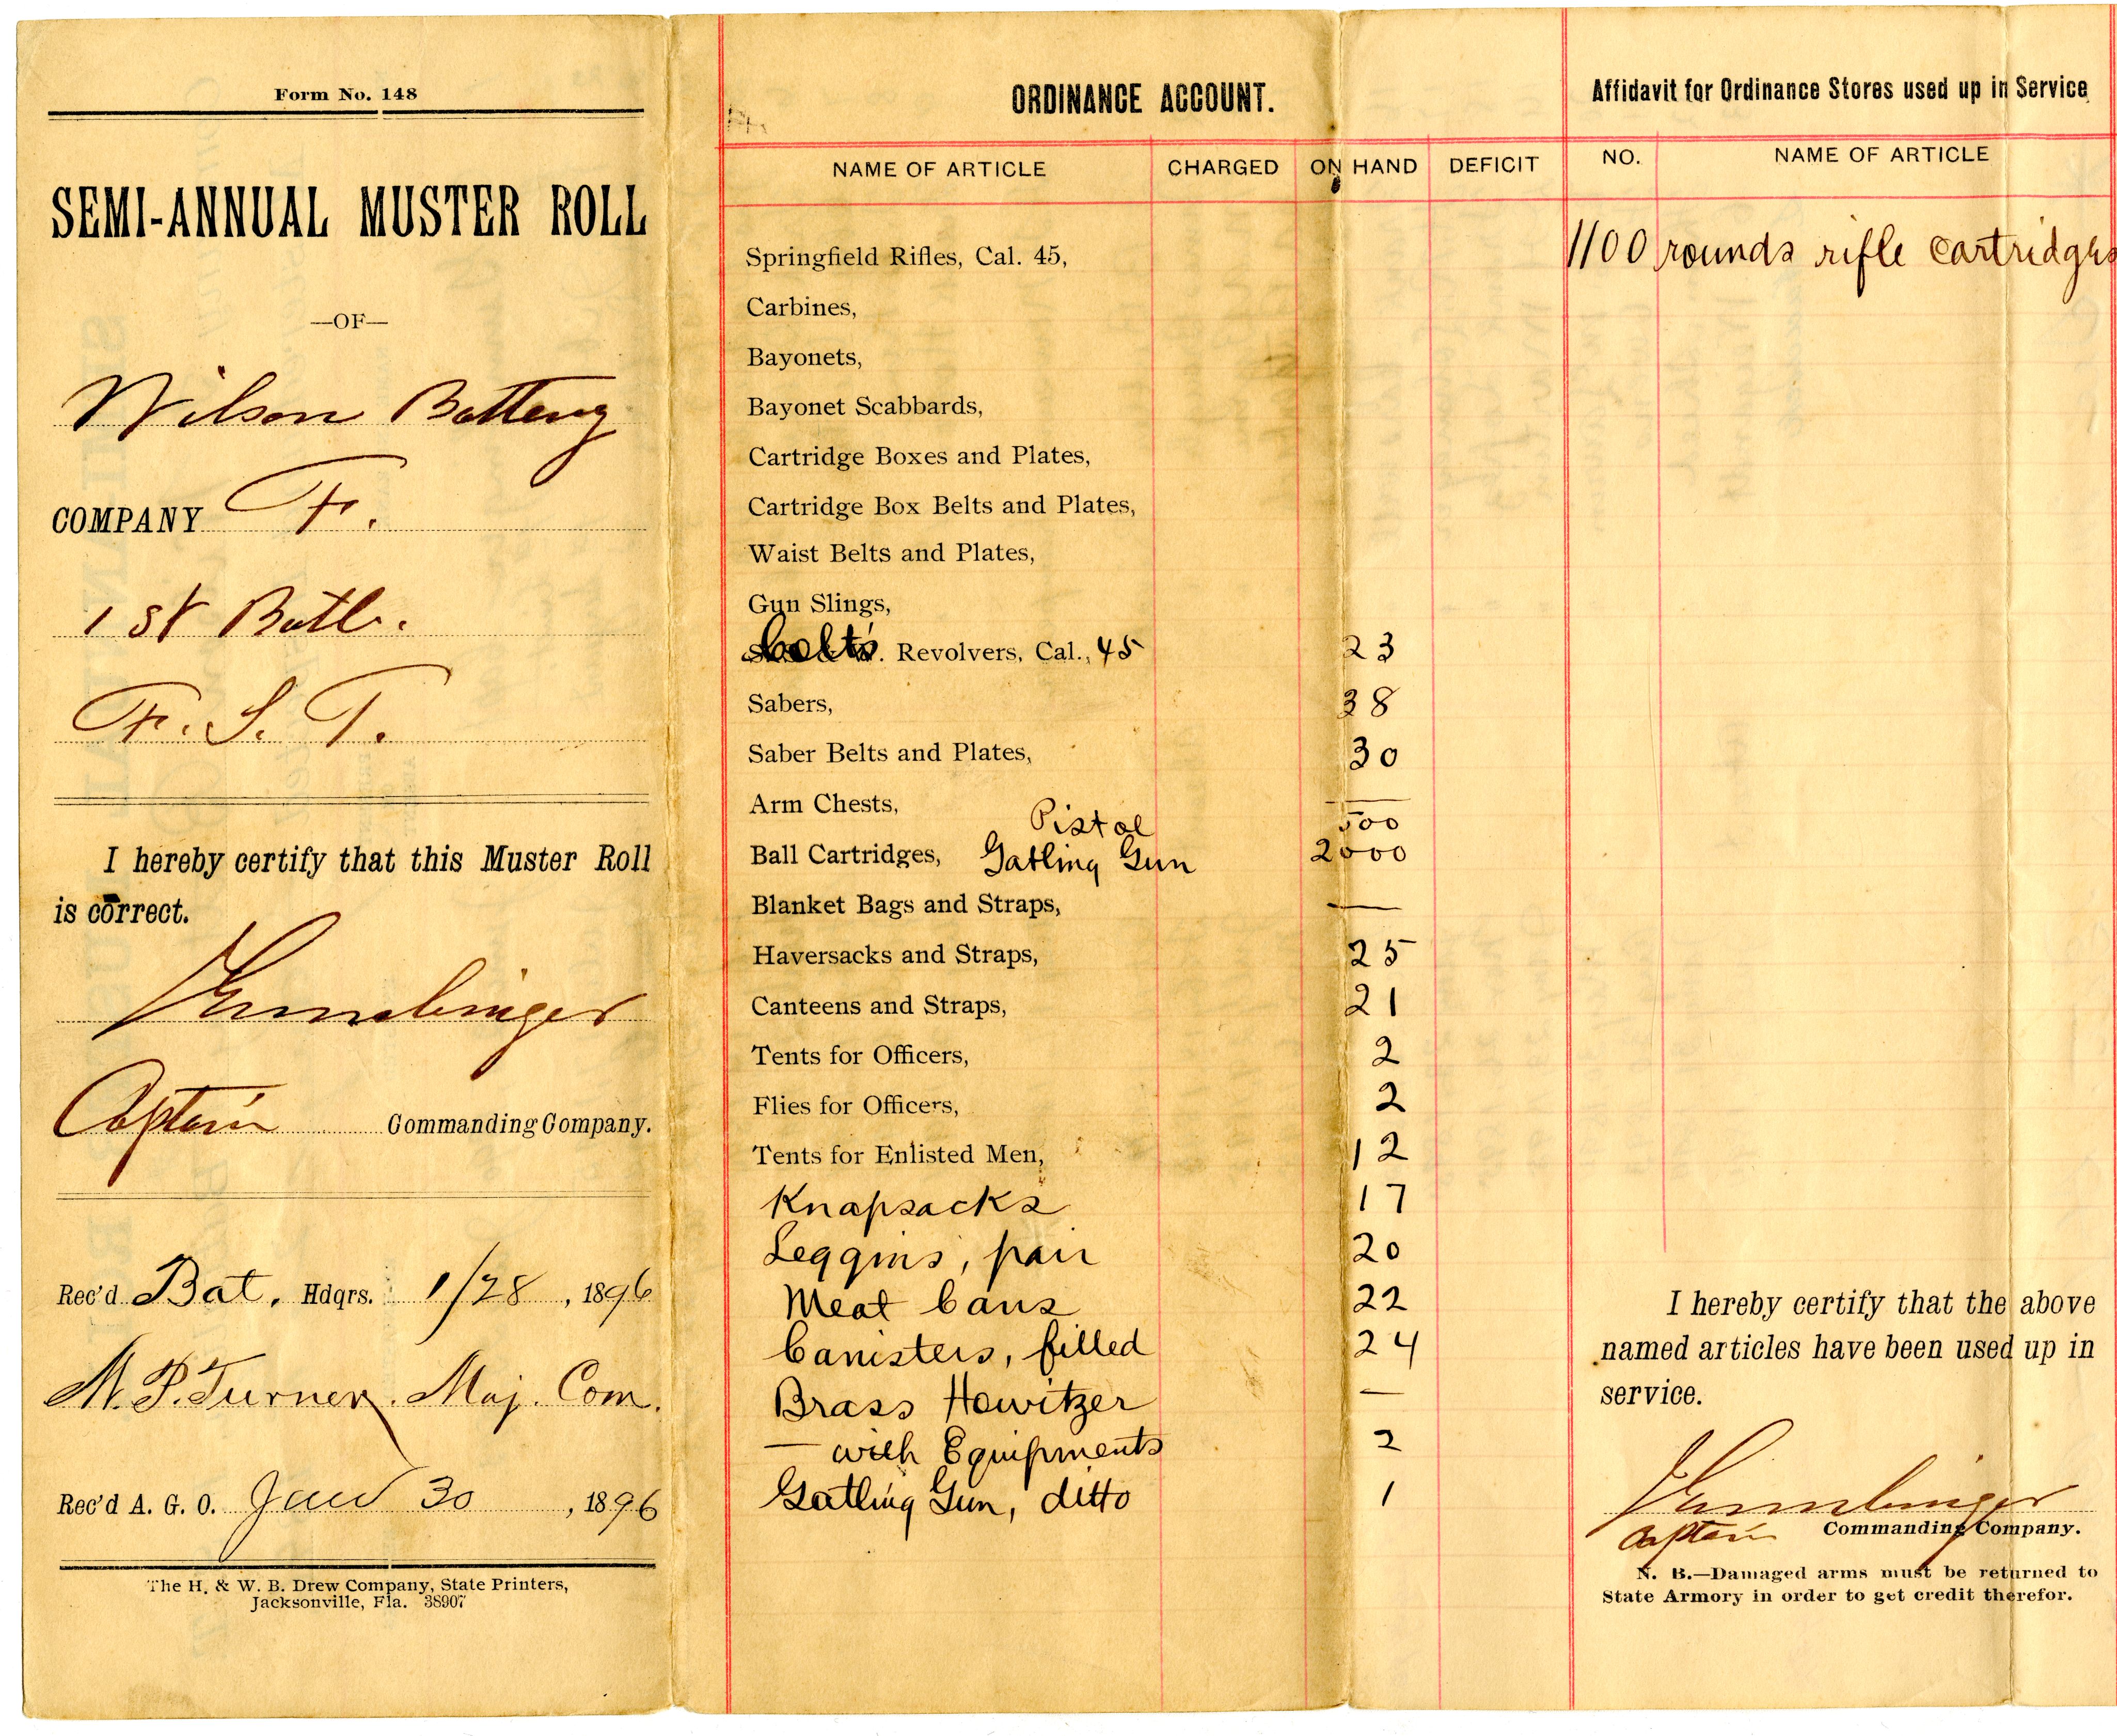 Form No. 148
SEMI-ANNUAL MUSTER ROLL
—OF—
Wilson Battery
COMPANY F.
1st Batl.
F. S. T.
I hereby certify that this Muster Roll
is correct.
Captain Commanding Company.
Rec'd Bat. Hdqrs. 1/28, 1896
M. P. Turner. Maj. Com.
Rec'd A. G. O. Jan 30, 1896
The H. & W. B. Drew Company, State Printers,
Jacksonville, Fla. 38907
ORDINANCE ACCOUNT.
NAME OF ARTICLE CHARGED ON HAND DEFICIT
Springfield Rifles, Cal. 45,
Carbines,
Bayonets,
Bayonet Scabbards,
Cartridge Boxes and Plates,
Cartridge Box Belts and Plates,
Waist Belts and Plates,
Gun Slings,
Colt's Revolvers, Cal., 45 23
Sabers, 38
Saber Belts and Plates, 30
Arm Chests, —
Pistol 500
Ball Cartridges, Gatling Gun 2000
Blanket Bags and Straps, —
Haversacks and Straps, 25
Canteens and Straps, 21
Tents for Officers, 2
Flies for Officers, 2
Tents for Enlisted Men, 12
Knapsacks 17
Leggins, pair 20
Meat Cans 22
Canisters, filled 24
Brass Howitzer —
— with Equipments 2
Gatling Gun, ditto 1
Affidavit for Ordinance Stores used up in Service
NO. NAME OF ARTICLE
1100 rounds rifle cartridges
I hereby certify that the above
named articles have been used up in
service.
Captain Commanding Company.
N. B.—Damaged arms must be returned to
State Armory in order to get credit therefor.